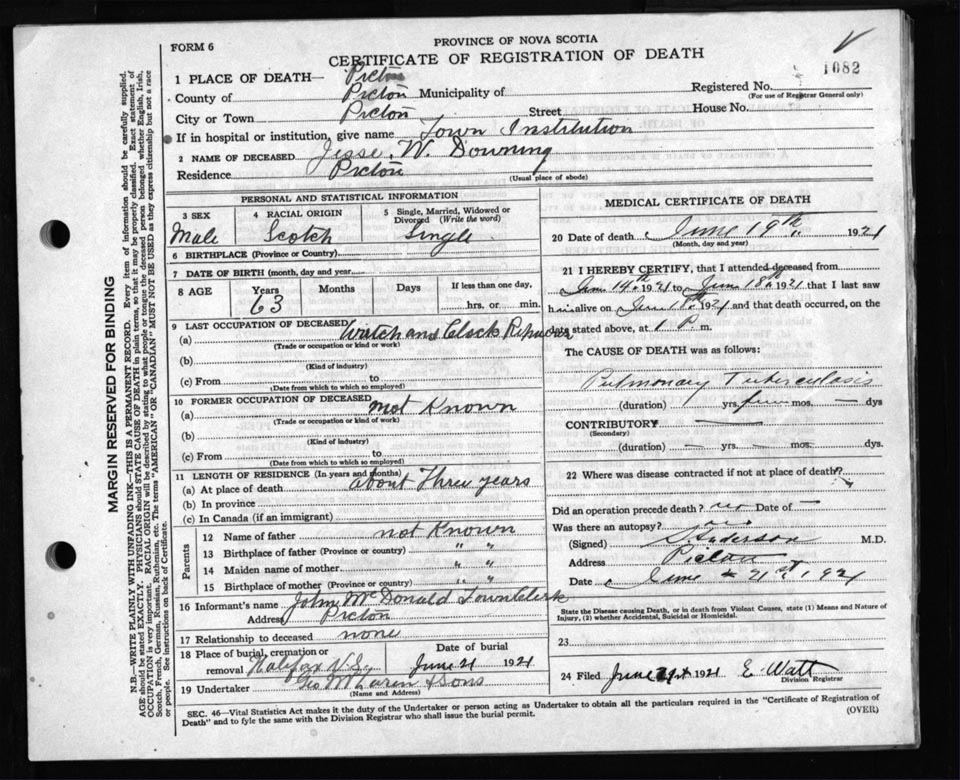 PROVINCE OF NOVA SCOTIA
FORM 6
CERTIFICATE OF REGISTRATION OF DEATH
1082
1 PLACE OF DEATH— Picton
Registered No.
(For use of Registrar General only)
County of Picton Municipality of
City or Town Picton Street House No.
If in hospital or institution, give name Town Institution
2 NAME OF DECEASED Jesse W. Downing
Residence Picton
(Usual place of abode)
PERSONAL AND STATISTICAL INFORMATION
3 SEX Male
4 RACIAL ORIGIN Scotch
5 Single, Married, Widowed or Divorced (Write the word) Single
6 BIRTHPLACE (Province or Country)
7 DATE OF BIRTH (month, day and year)
8 AGE Years 63 Months Days If less than one day, hrs. or min.
9 LAST OCCUPATION OF DECEASED
(a) Watch and Clock
(Trade or occupation or kind or work)
(b)
(Kind of industry)
(c) From to
(Date from which to which so employed)
10 FORMER OCCUPATION OF DECEASED
(a) not Known
(Trade or occupation or kind of work)
(b)
(Kind of Industry)
(c) From to
(Date from which to which so employed)
11 LENGTH OF RESIDENCE (In years and months)
(a) At place of death about Three years
(b) In province
(c) In Canada (if an immigrant)
Parents
12 Name of father not Known
13 Birthplace of father (Province or country) " "
14 Maiden name of mother " "
15 Birthplace of mother (Province or country) " "
16 Informant's name John McDonald Town Clerk
Address Picton
17 Relationship to deceased none
18 Place of burial, cremation or removal Halifax N.S.
Date of burial June 21 1921
19 Undertaker Geo McLaren & Sons
(Name and Address)
MEDICAL CERTIFICATE OF DEATH
20 Date of death June 19th 1921
(Month, day and year)
21 I HEREBY CERTIFY, that I attended deceased from
June 14th 1921 to June 18th 1921 that I last saw
him alive on June 18th 1921 and that death occurred, on the
date stated above, at 1 P. m.
The CAUSE OF DEATH was as follows:
Pulmonary Tuberculosis
(duration) yrs. mos. — dys
CONTRIBUTORY —
(Secondary)
(duration) — yrs. — mos. — dys.
22 Where was disease contracted if not at place of death? —
Did an operation precede death? no Date of —
Was there an autopsy? no
(Signed) S Anderson M.D.
Address Pictou
Date June 21st, 1921
State the Disease causing Death, or in death from Violent Causes, state (1) Means and Nature of
Injury, (2) whether Accidental, Suicidal or Homicidal.
23
24 Filed June 21st 1921 E Watt
Division Registrar
SEC. 46—Vital Statistics Act makes it the duty of the Undertaker or person acting as Undertaker to obtain all the particulars required in the "Certificate of Registration of
Death" and to fyle the same with the Division Registrar who shall issue the burial permit.
(OVER)
MARGIN RESERVED FOR BINDING
N.B.—WRITE PLAINLY WITH UNFADING INK—THIS IS A PERMANENT RECORD. Every item of information should be carefully supplied.
AGE should be stated EXACTLY. PHYSICIANS should STATE CAUSE OF DEATH in plain terms, so that it may be properly classified. Exact statement of
OCCUPATION is very important. RACIAL ORIGIN will be described by stating to what people or tongue the deceased person belonged whether English, Irish,
Scotch, French, German, Russian, Ruthenian, etc. The terms "AMERICAN" OR "CANADIAN" MUST NOT BE USED as they express citizenship but not a race
or people. See instructions on back of Certificate.